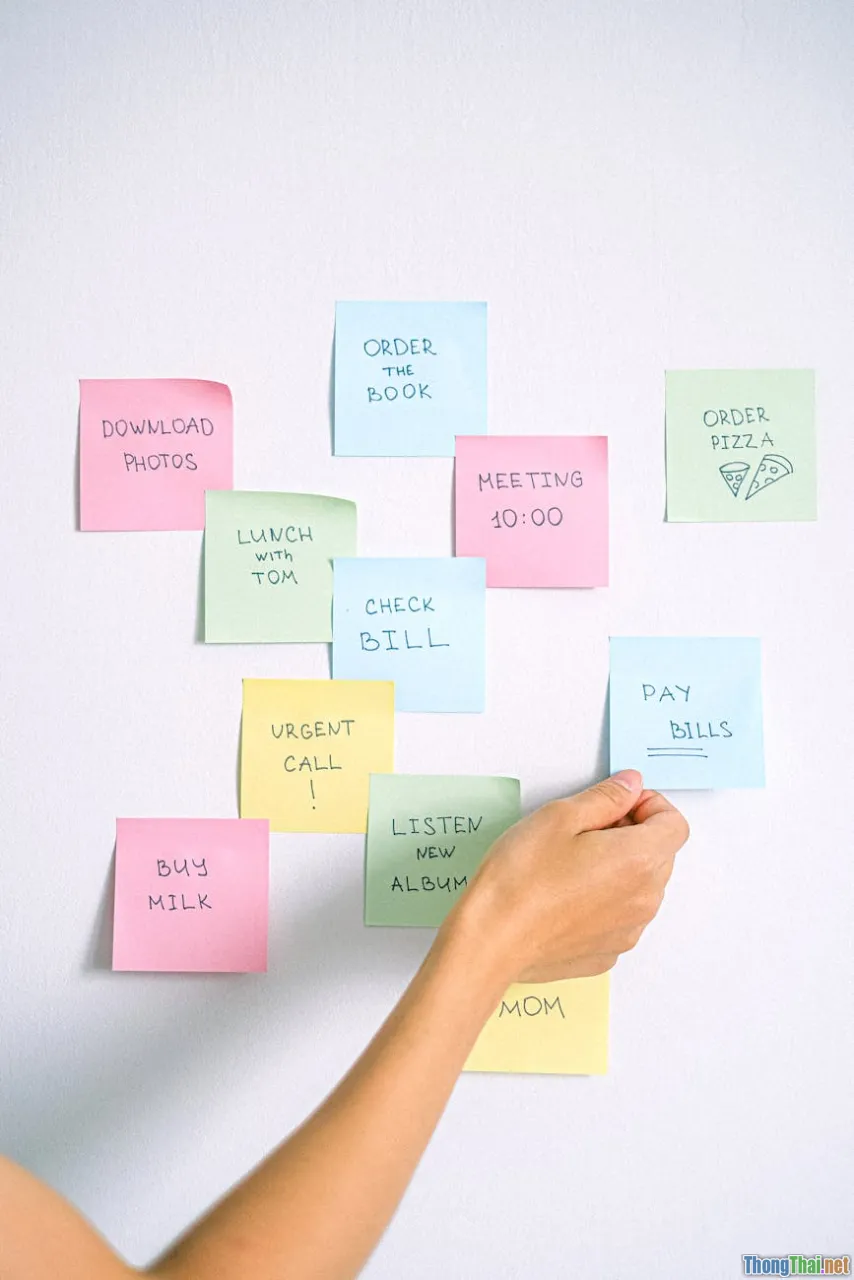 ORDER
THE
BOOK
ORDER
PIZZA
DOWNLOAD
PHOTOS
MEETING
10:00
LUNCH
WITH
TOM
CHECK
BILL
PAY
BILLS
URGENT
CALL
!
LISTEN
NEW
ALBUM
BUY
MILK
MOM
ThongThai.net